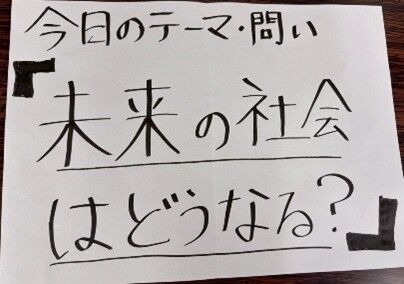 今日のテーマ・問い
『未来の社会
はどうなる?』